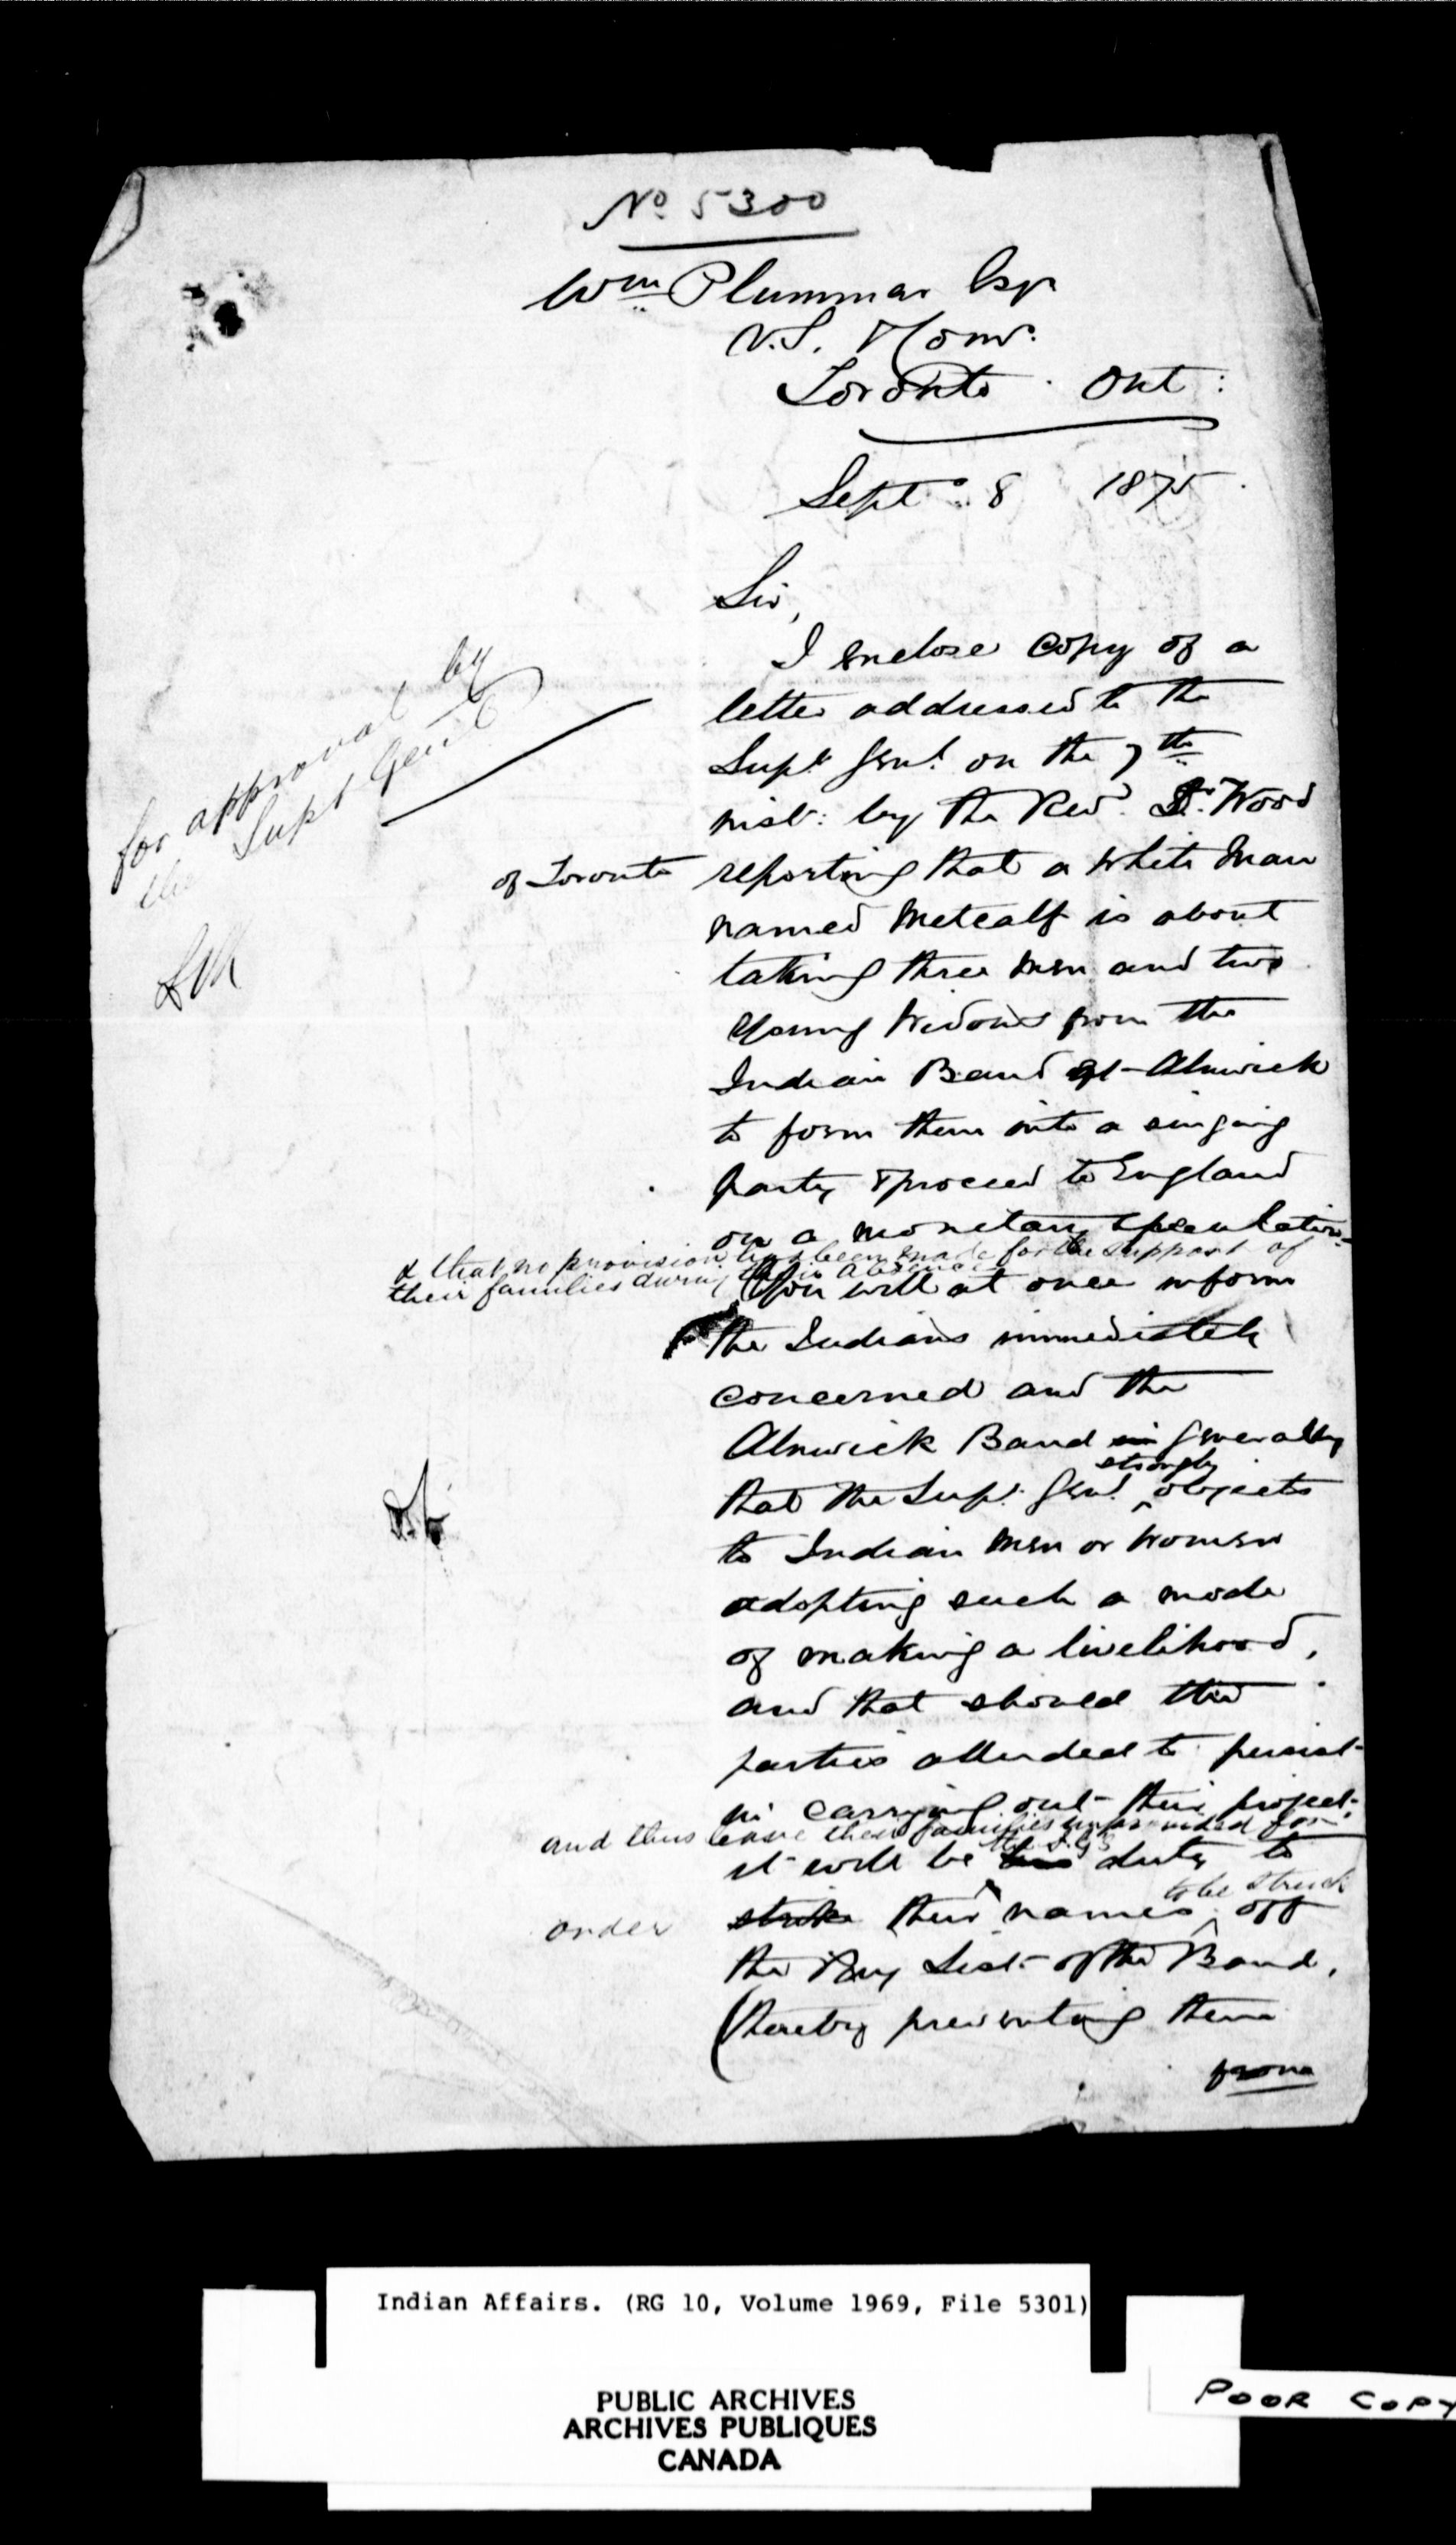 No 5300
Wm Plummer Esqr
V.S. & Comr.
Toronto. Ont:
Sept: 8 1875.
for approval by
the Supt Genl
Sir,
I enclose copy of a
letter addressed to the
Supt Genl. on the 7th
inst: by the Revd. Dr. Wood
of Toronto
reporting that a white man
named Metcalf is about
taking three men and two
young widows from the
Indian Band at Alnwick
to form them into a singing
party & proceed to England
on a monetary speculation
& that no provision has been made for the support of
their families during their absence
You will at once inform
the Indians immediately
concerned and the
Alnwick Band in generally
that the Supt. Genl. strongly objects
to Indian men or women
adopting such a mode
of making a livelihood,
and that should the
parties alluded to persist
in carrying out their project,
and thus leave their families unprovided for
it will be his the S.G's duty to
order strike their names to be struck off
the Pay List of the Band,
(thereby preventing them
from
Indian Affairs. (RG 10, Volume 1969, File 5301)
PUBLIC ARCHIVES
ARCHIVES PUBLIQUES
CANADA
POOR COPY